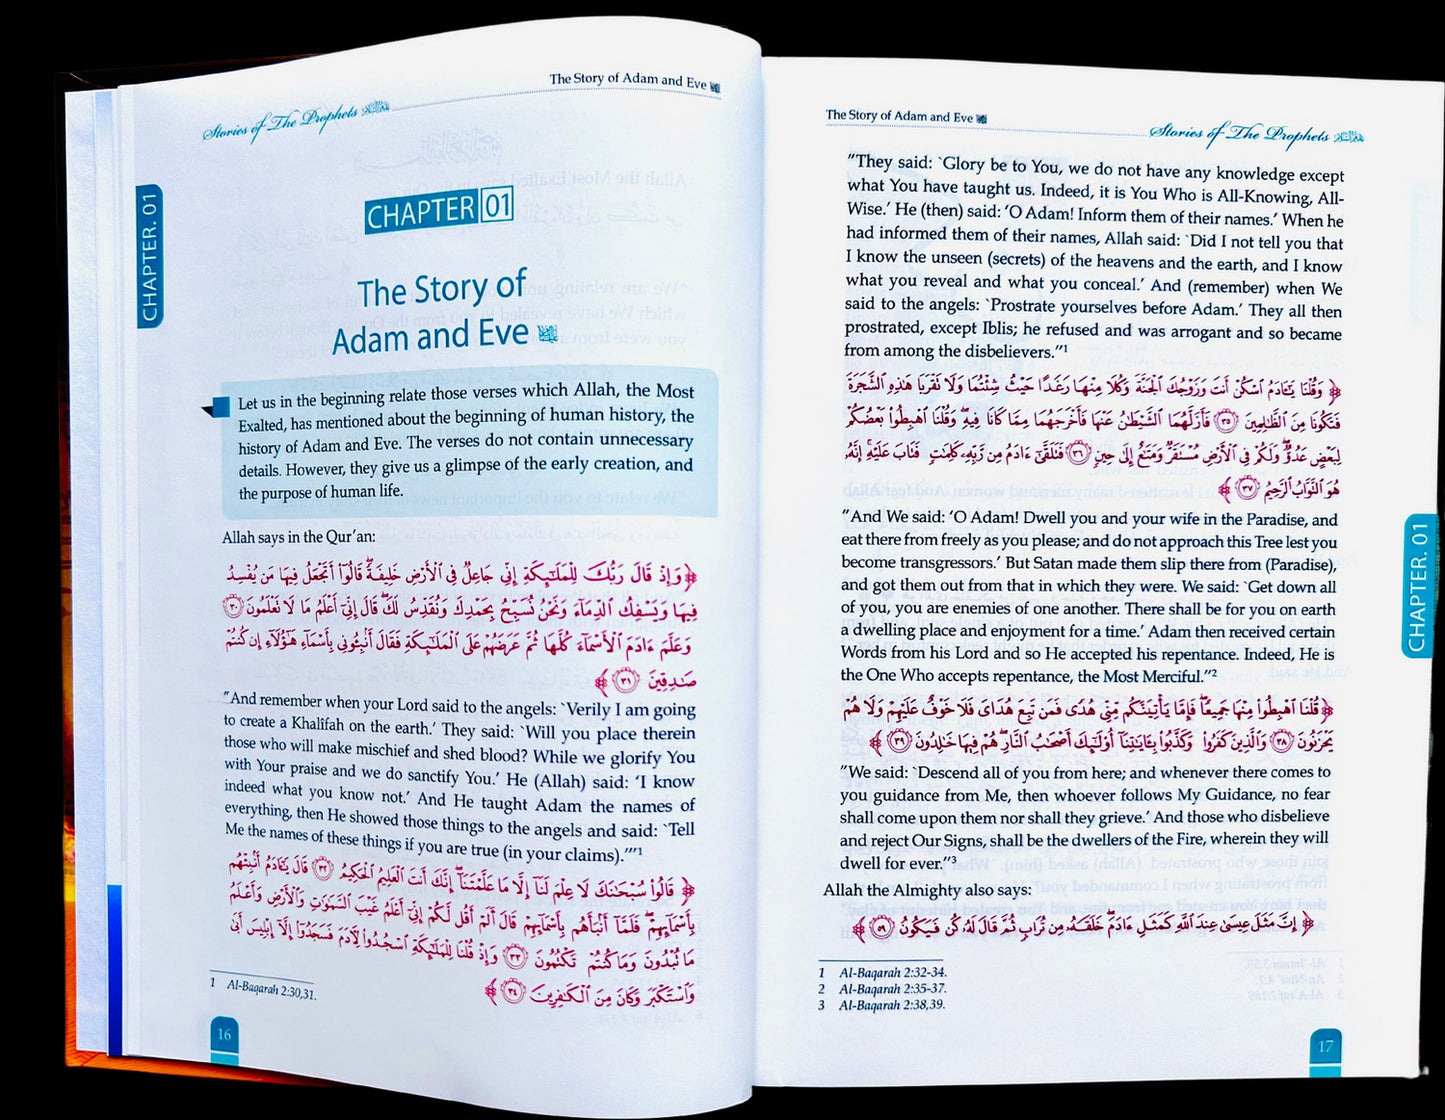 The Story of Adam and Eve
Stories of The Prophets
CHAPTER. 01
CHAPTER 01
The Story of
Adam and Eve
Let us in the beginning relate those verses which Allah, the Most
Exalted, has mentioned about the beginning of human history, the
history of Adam and Eve. The verses do not contain unnecessary
details. However, they give us a glimpse of the early creation, and
the purpose of human life.
Allah says in the Qur'an:
﴿ وَإِذْ قَالَ رَبُّكَ لِلْمَلَٰٓئِكَةِ إِنِّي جَاعِلٌ فِي ٱلْأَرْضِ خَلِيفَةً ۖ قَالُوٓا۟ أَتَجْعَلُ فِيهَا مَن يُفْسِدُ
فِيهَا وَيَسْفِكُ ٱلدِّمَآءَ وَنَحْنُ نُسَبِّحُ بِحَمْدِكَ وَنُقَدِّسُ لَكَ ۖ قَالَ إِنِّيٓ أَعْلَمُ مَا لَا تَعْلَمُونَ ٣٠
وَعَلَّمَ ءَادَمَ ٱلْأَسْمَآءَ كُلَّهَا ثُمَّ عَرَضَهُمْ عَلَى ٱلْمَلَٰٓئِكَةِ فَقَالَ أَنۢبِـُٔونِي بِأَسْمَآءِ هَٰٓؤُلَآءِ إِن كُنتُمْ
صَٰدِقِينَ ٣١ ﴾
"And remember when your Lord said to the angels: `Verily I am going
to create a Khalîfah on the earth.' They said: `Will you place therein
those who will make mischief and shed blood? While we glorify You
with Your praise and we do sanctify You.' He (Allah) said: 'I know
indeed what you know not.' And He taught Adam the names of
everything, then He showed those things to the angels and said: `Tell
Me the names of these things if you are true (in your claims).'"'1
﴿ قَالُوا۟ سُبْحَٰنَكَ لَا عِلْمَ لَنَآ إِلَّا مَا عَلَّمْتَنَآ ۖ إِنَّكَ أَنتَ ٱلْعَلِيمُ ٱلْحَكِيمُ ٣٢ قَالَ يَٰٓـَٔادَمُ أَنۢبِئْهُم
بِأَسْمَآئِهِمْ ۖ فَلَمَّآ أَنۢبَأَهُم بِأَسْمَآئِهِمْ قَالَ أَلَمْ أَقُل لَّكُمْ إِنِّيٓ أَعْلَمُ غَيْبَ ٱلسَّمَٰوَٰتِ وَٱلْأَرْضِ وَأَعْلَمُ
مَا تُبْدُونَ وَمَا كُنتُمْ تَكْتُمُونَ ٣٣ وَإِذْ قُلْنَا لِلْمَلَٰٓئِكَةِ ٱسْجُدُوا۟ لِءَادَمَ فَسَجَدُوٓا۟ إِلَّآ إِبْلِيسَ أَبَىٰ
وَٱسْتَكْبَرَ وَكَانَ مِنَ ٱلْكَٰفِرِينَ ٣٤ ﴾
1 Al-Baqarah 2:30,31.
16
The Story of Adam and Eve
Stories of The Prophets
"They said: `Glory be to You, we do not have any knowledge except
what You have taught us. Indeed, it is You Who is All-Knowing, All-
Wise.' He (then) said: 'O Adam! Inform them of their names.' When he
had informed them of their names, Allah said: `Did I not tell you that
I know the unseen (secrets) of the heavens and the earth, and I know
what you reveal and what you conceal.' And (remember) when We
said to the angels: `Prostrate yourselves before Adam.' They all then
prostrated, except Iblis; he refused and was arrogant and so became
from among the disbelievers."1
﴿ وَقُلْنَا يَٰٓـَٔادَمُ ٱسْكُنْ أَنتَ وَزَوْجُكَ ٱلْجَنَّةَ وَكُلَا مِنْهَا رَغَدًا حَيْثُ شِئْتُمَا وَلَا تَقْرَبَا هَٰذِهِ ٱلشَّجَرَةَ
فَتَكُونَا مِنَ ٱلظَّٰلِمِينَ ٣٥ فَأَزَلَّهُمَا ٱلشَّيْطَٰنُ عَنْهَا فَأَخْرَجَهُمَا مِمَّا كَانَا فِيهِ ۖ وَقُلْنَا ٱهْبِطُوا۟ بَعْضُكُمْ
لِبَعْضٍ عَدُوٌّ ۖ وَلَكُمْ فِي ٱلْأَرْضِ مُسْتَقَرٌّ وَمَتَٰعٌ إِلَىٰ حِينٍ ٣٦ فَتَلَقَّىٰٓ ءَادَمُ مِن رَّبِّهِۦ كَلِمَٰتٍ فَتَابَ عَلَيْهِ ۚ إِنَّهُۥ
هُوَ ٱلتَّوَّابُ ٱلرَّحِيمُ ٣٧ ﴾
"And We said: 'O Adam! Dwell you and your wife in the Paradise, and
eat there from freely as you please; and do not approach this Tree lest you
become transgressors.' But Satan made them slip there from (Paradise),
and got them out from that in which they were. We said: `Get down all
of you, you are enemies of one another. There shall be for you on earth
a dwelling place and enjoyment for a time.' Adam then received certain
Words from his Lord and so He accepted his repentance. Indeed, He is
the One Who accepts repentance, the Most Merciful."2
﴿ قُلْنَا ٱهْبِطُوا۟ مِنْهَا جَمِيعًا ۖ فَإِمَّا يَأْتِيَنَّكُم مِّنِّي هُدًى فَمَن تَبِعَ هُدَايَ فَلَا خَوْفٌ عَلَيْهِمْ وَلَا هُمْ
يَحْزَنُونَ ٣٨ وَٱلَّذِينَ كَفَرُوا۟ وَكَذَّبُوا۟ بِـَٔايَٰتِنَآ أُو۟لَٰٓئِكَ أَصْحَٰبُ ٱلنَّارِ ۖ هُمْ فِيهَا خَٰلِدُونَ ٣٩ ﴾
"We said: `Descend all of you from here; and whenever there comes to
you guidance from Me, then whoever follows My Guidance, no fear
shall come upon them nor shall they grieve.' And those who disbelieve
and reject Our Signs, shall be the dwellers of the Fire, wherein they will
dwell for ever."3
Allah the Almighty also says:
﴿ إِنَّ مَثَلَ عِيسَىٰ عِندَ ٱللَّهِ كَمَثَلِ ءَادَمَ ۖ خَلَقَهُۥ مِن تُرَابٍ ثُمَّ قَالَ لَهُۥ كُن فَيَكُونُ ٥٩ ﴾
1 Al-Baqarah 2:32-34.
2 Al-Baqarah 2:35-37.
3 Al-Baqarah 2:38,39.
CHAPTER. 01
17